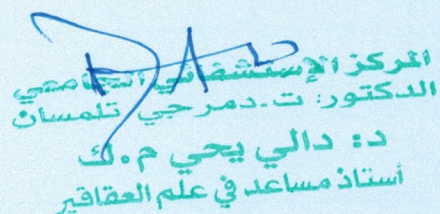 المركز الإستشفائي الجامعي
الدكتور: ت.دمرجي تلمسان
د: دالي يحي م.ك
أستاذ مساعد في علم العقاقير